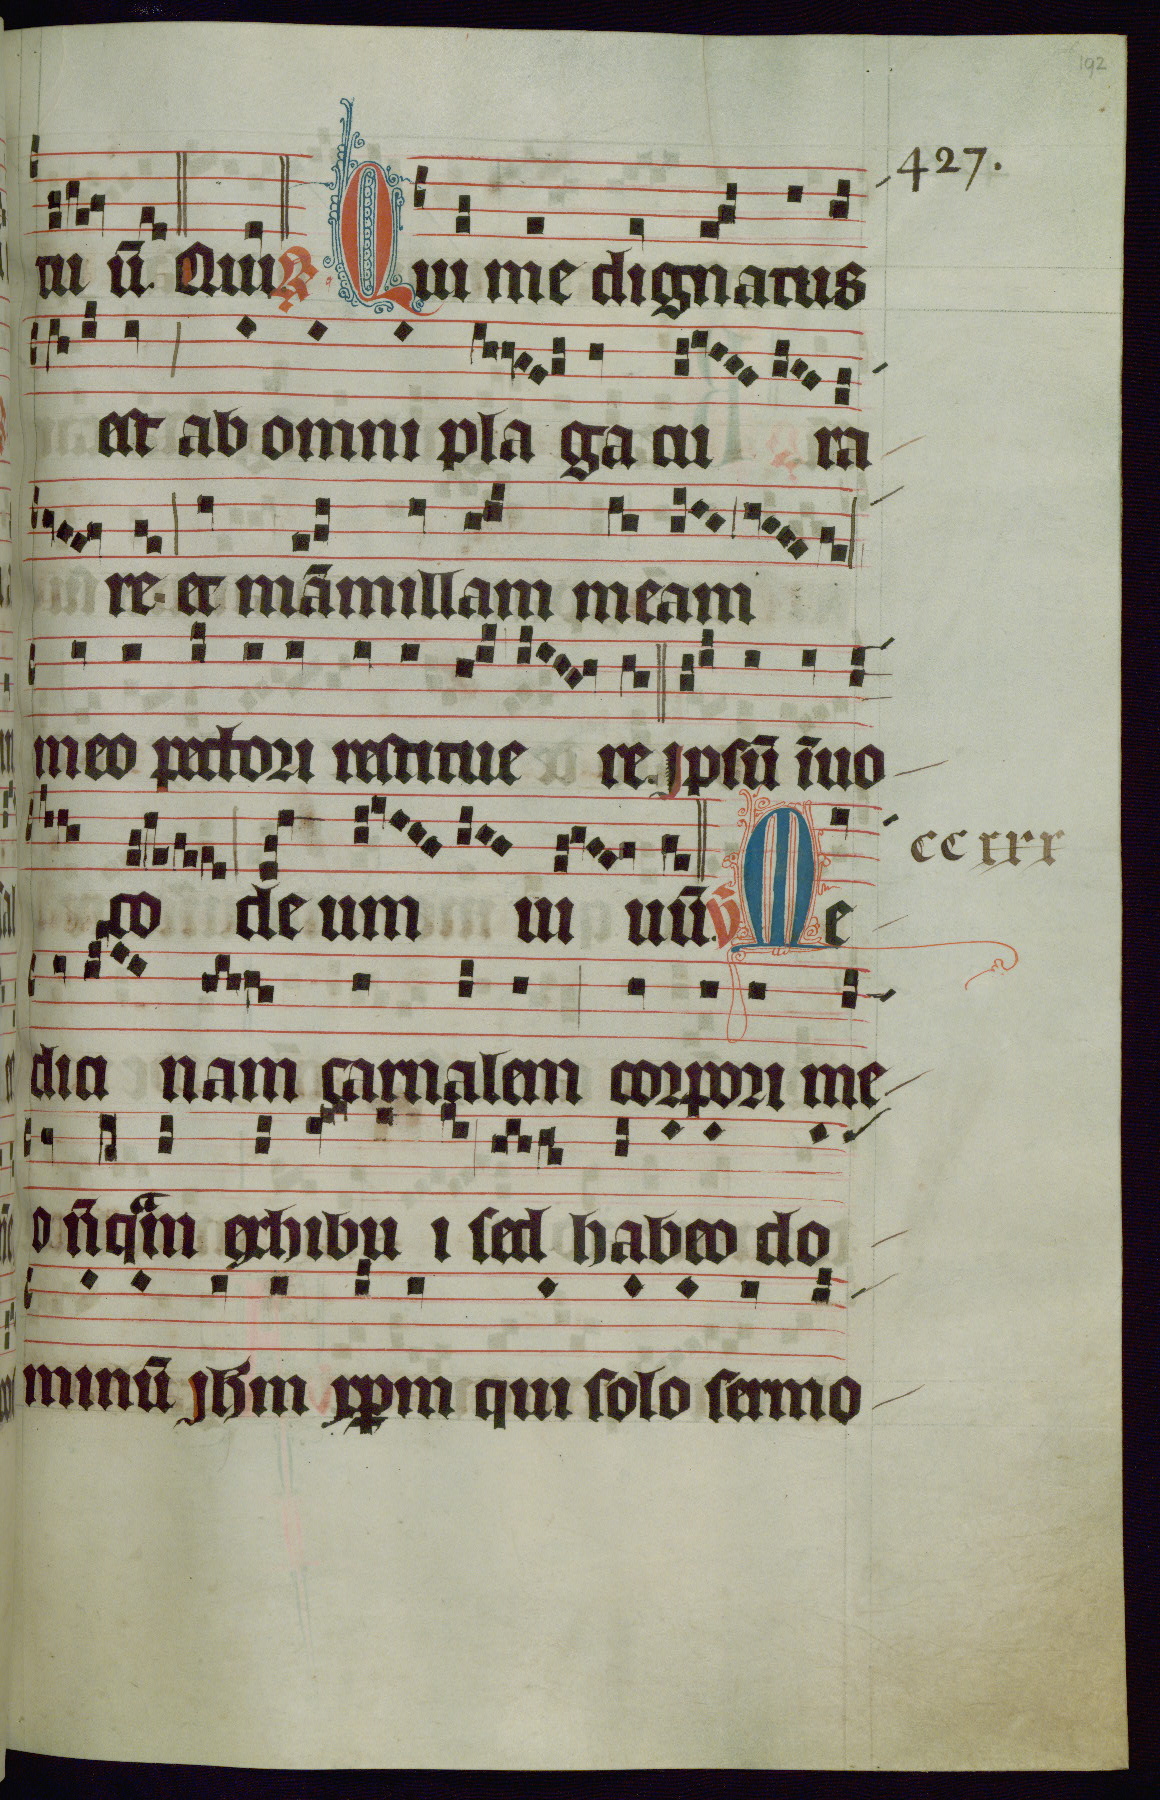 192
427.
tu ū. Qui ℟. Qui me dignatus
est ab omni pla ga cu ra
re. et māmillam meam
meo pectori restitue re. Jpsū īuo
co de um ui uū. ℣ Me
ccxxx
dici nam carnalem corpori me
o nūqᵃm exhibu i sed habeo do
minū jhm̄ xp̄m qui solo sermo